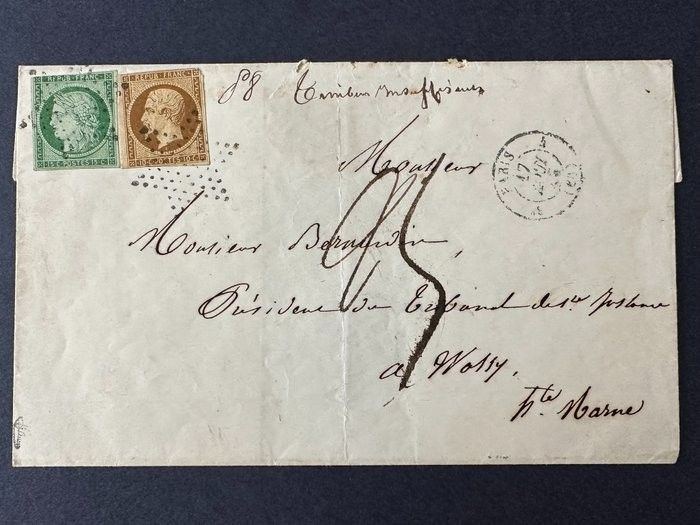 REPUB. FRANC.
15 C. POSTES 15 C.
REPUB. FRANC.
10 C. POSTES 10 C.
Timbre insuffisant
Monsieur
PARIS
17
25
Monsieur
Président du Tribunal de 1re Instance
à Wassy,
hte Marne